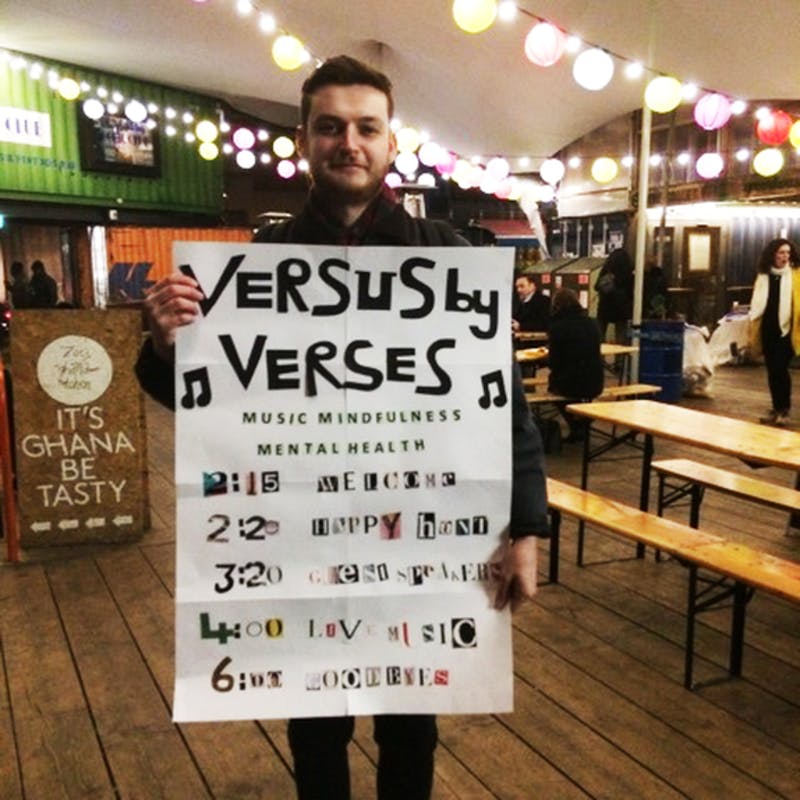 VERSUS by
VERSES
MUSIC MINDFULNESS
MENTAL HEALTH
2:15 WELCOME
2:20 HAPPY hUNT
3:20 GUEST SPEAKERS
4:00 LIVE MUSIC
6:00 GOODBYES
CLUB
IT'S
GHANA
BE
TASTY